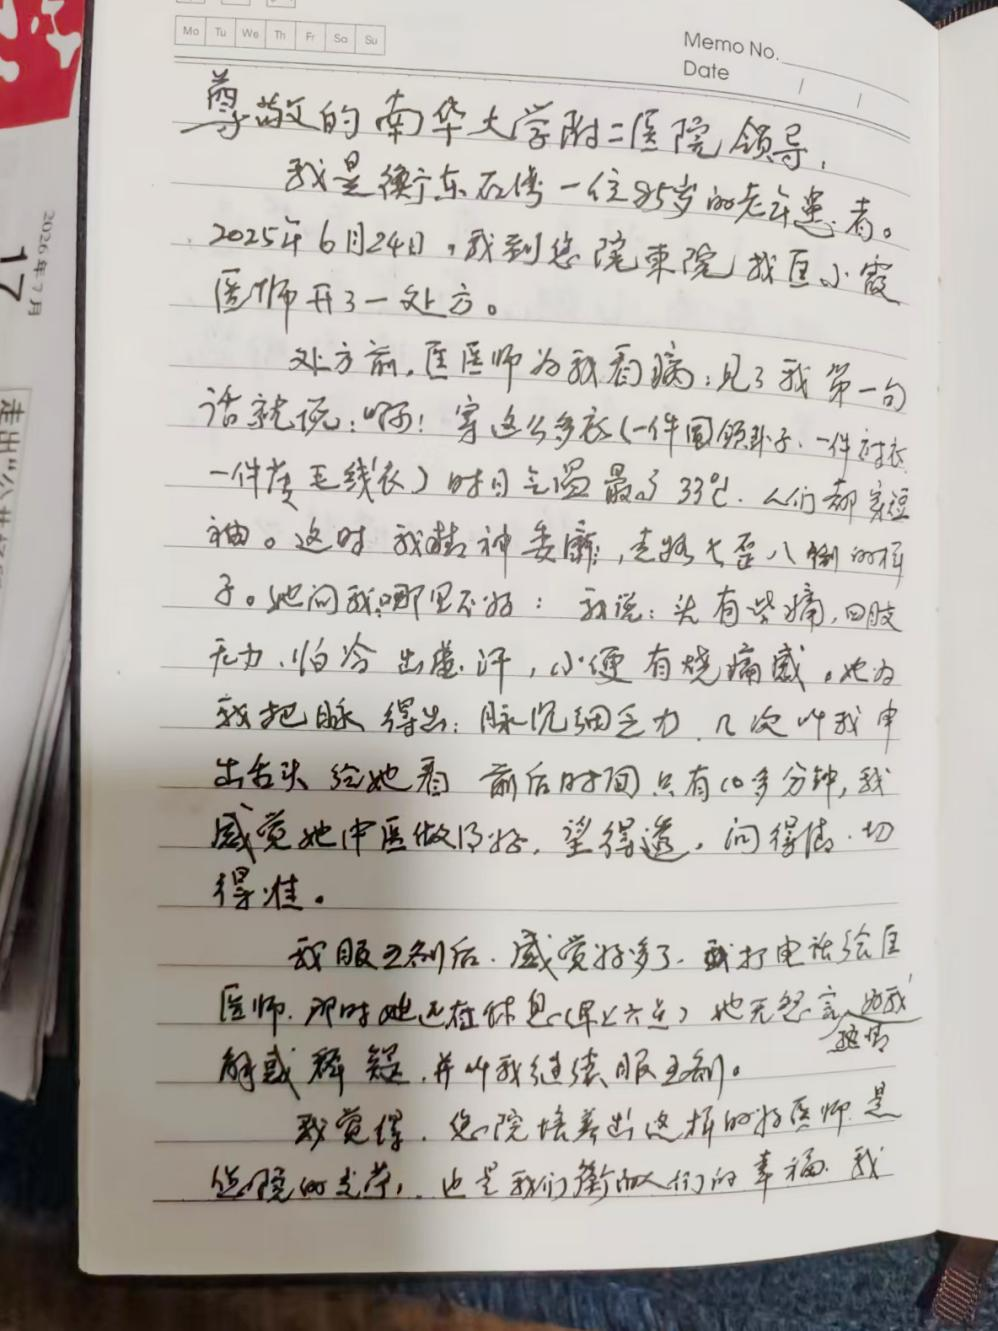 Mo Tu We Th Fr Sa Su
Memo No.
Date / /
尊敬的南华大学附二医院领导,
我是衡东石湾一位85岁的老年患者。
2025年6月24日,我到您院东院找匡小霞
医师开了一处方。
处方前,匡医师为我看病:见了我第一句
话就说:呀!穿这么多衣(一件圆领卦子、一件衬衣
一件厚毛线衣)时日气温最高33℃.人们都穿短
袖。这时我精神委靡,走路七歪八倒的样
子。她问我哪里不好:我说:头有些痛,四肢
无力、怕冷出虚汗,小便有烧痛感。她为
我把脉得出:脉沉细乏力.几次叫我申
出舌头给她看 前后时间只有10多分钟,我
感觉她中医做得好,望得透,问得清.切
得准。
我服五剂后.感觉好多了.我打电话给匡
医师.那时她还在休息(早上六点)她无怨言为我
热情
解惑释疑.并叫我继续服五剂。
我觉得.您院培养出这样的好医师.是
您院的光荣,也是我们衡南人们的幸福.我
2026年7月
17
走出"八卦